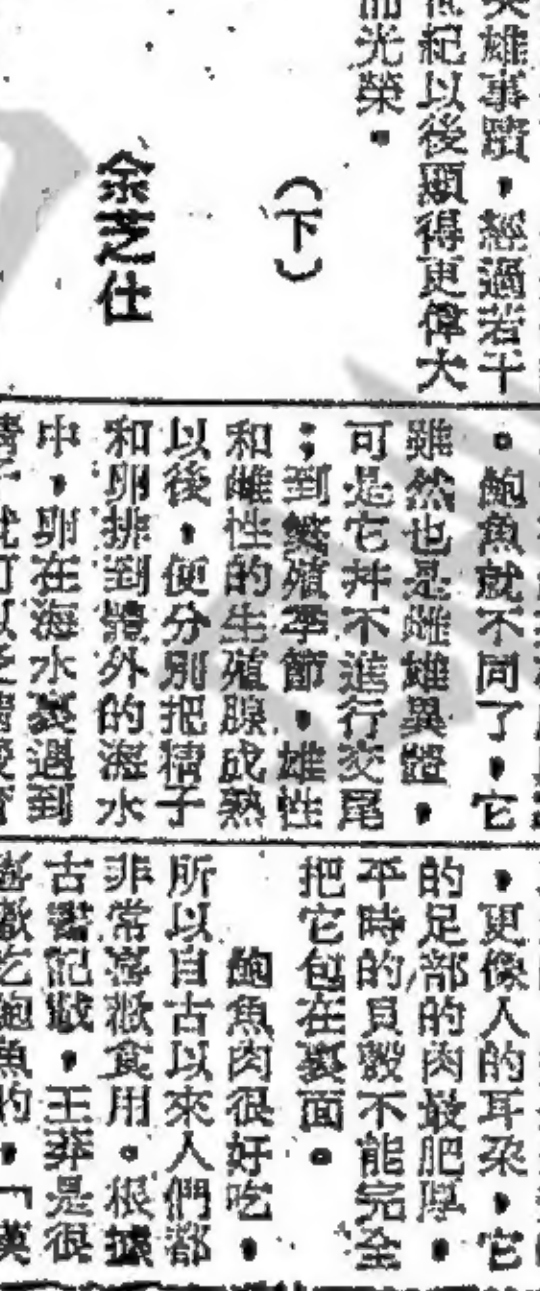 英雄事蹟，經過若干
世紀以後顯得更偉大
而光榮。
（下）
余芝仕
。鮑魚就不同了，它
雖然也是雌雄異體，
可是它并不進行交尾
；到繁殖季節，雄性
和雌性的生殖腺成熟
以後，便分別把精子
和卵排到體外的海水
中，卵在海水裏遇到
精子就可以受精
，更像人的耳朵，它
的足部的肉最肥厚，
平時的貝殼不能完全
把它包在裏面。
鮑魚肉很好吃，
所以自古以來人們都
非常喜歡食用。根據
古書記載，王莽是很
喜歡吃鮑魚的，「漢